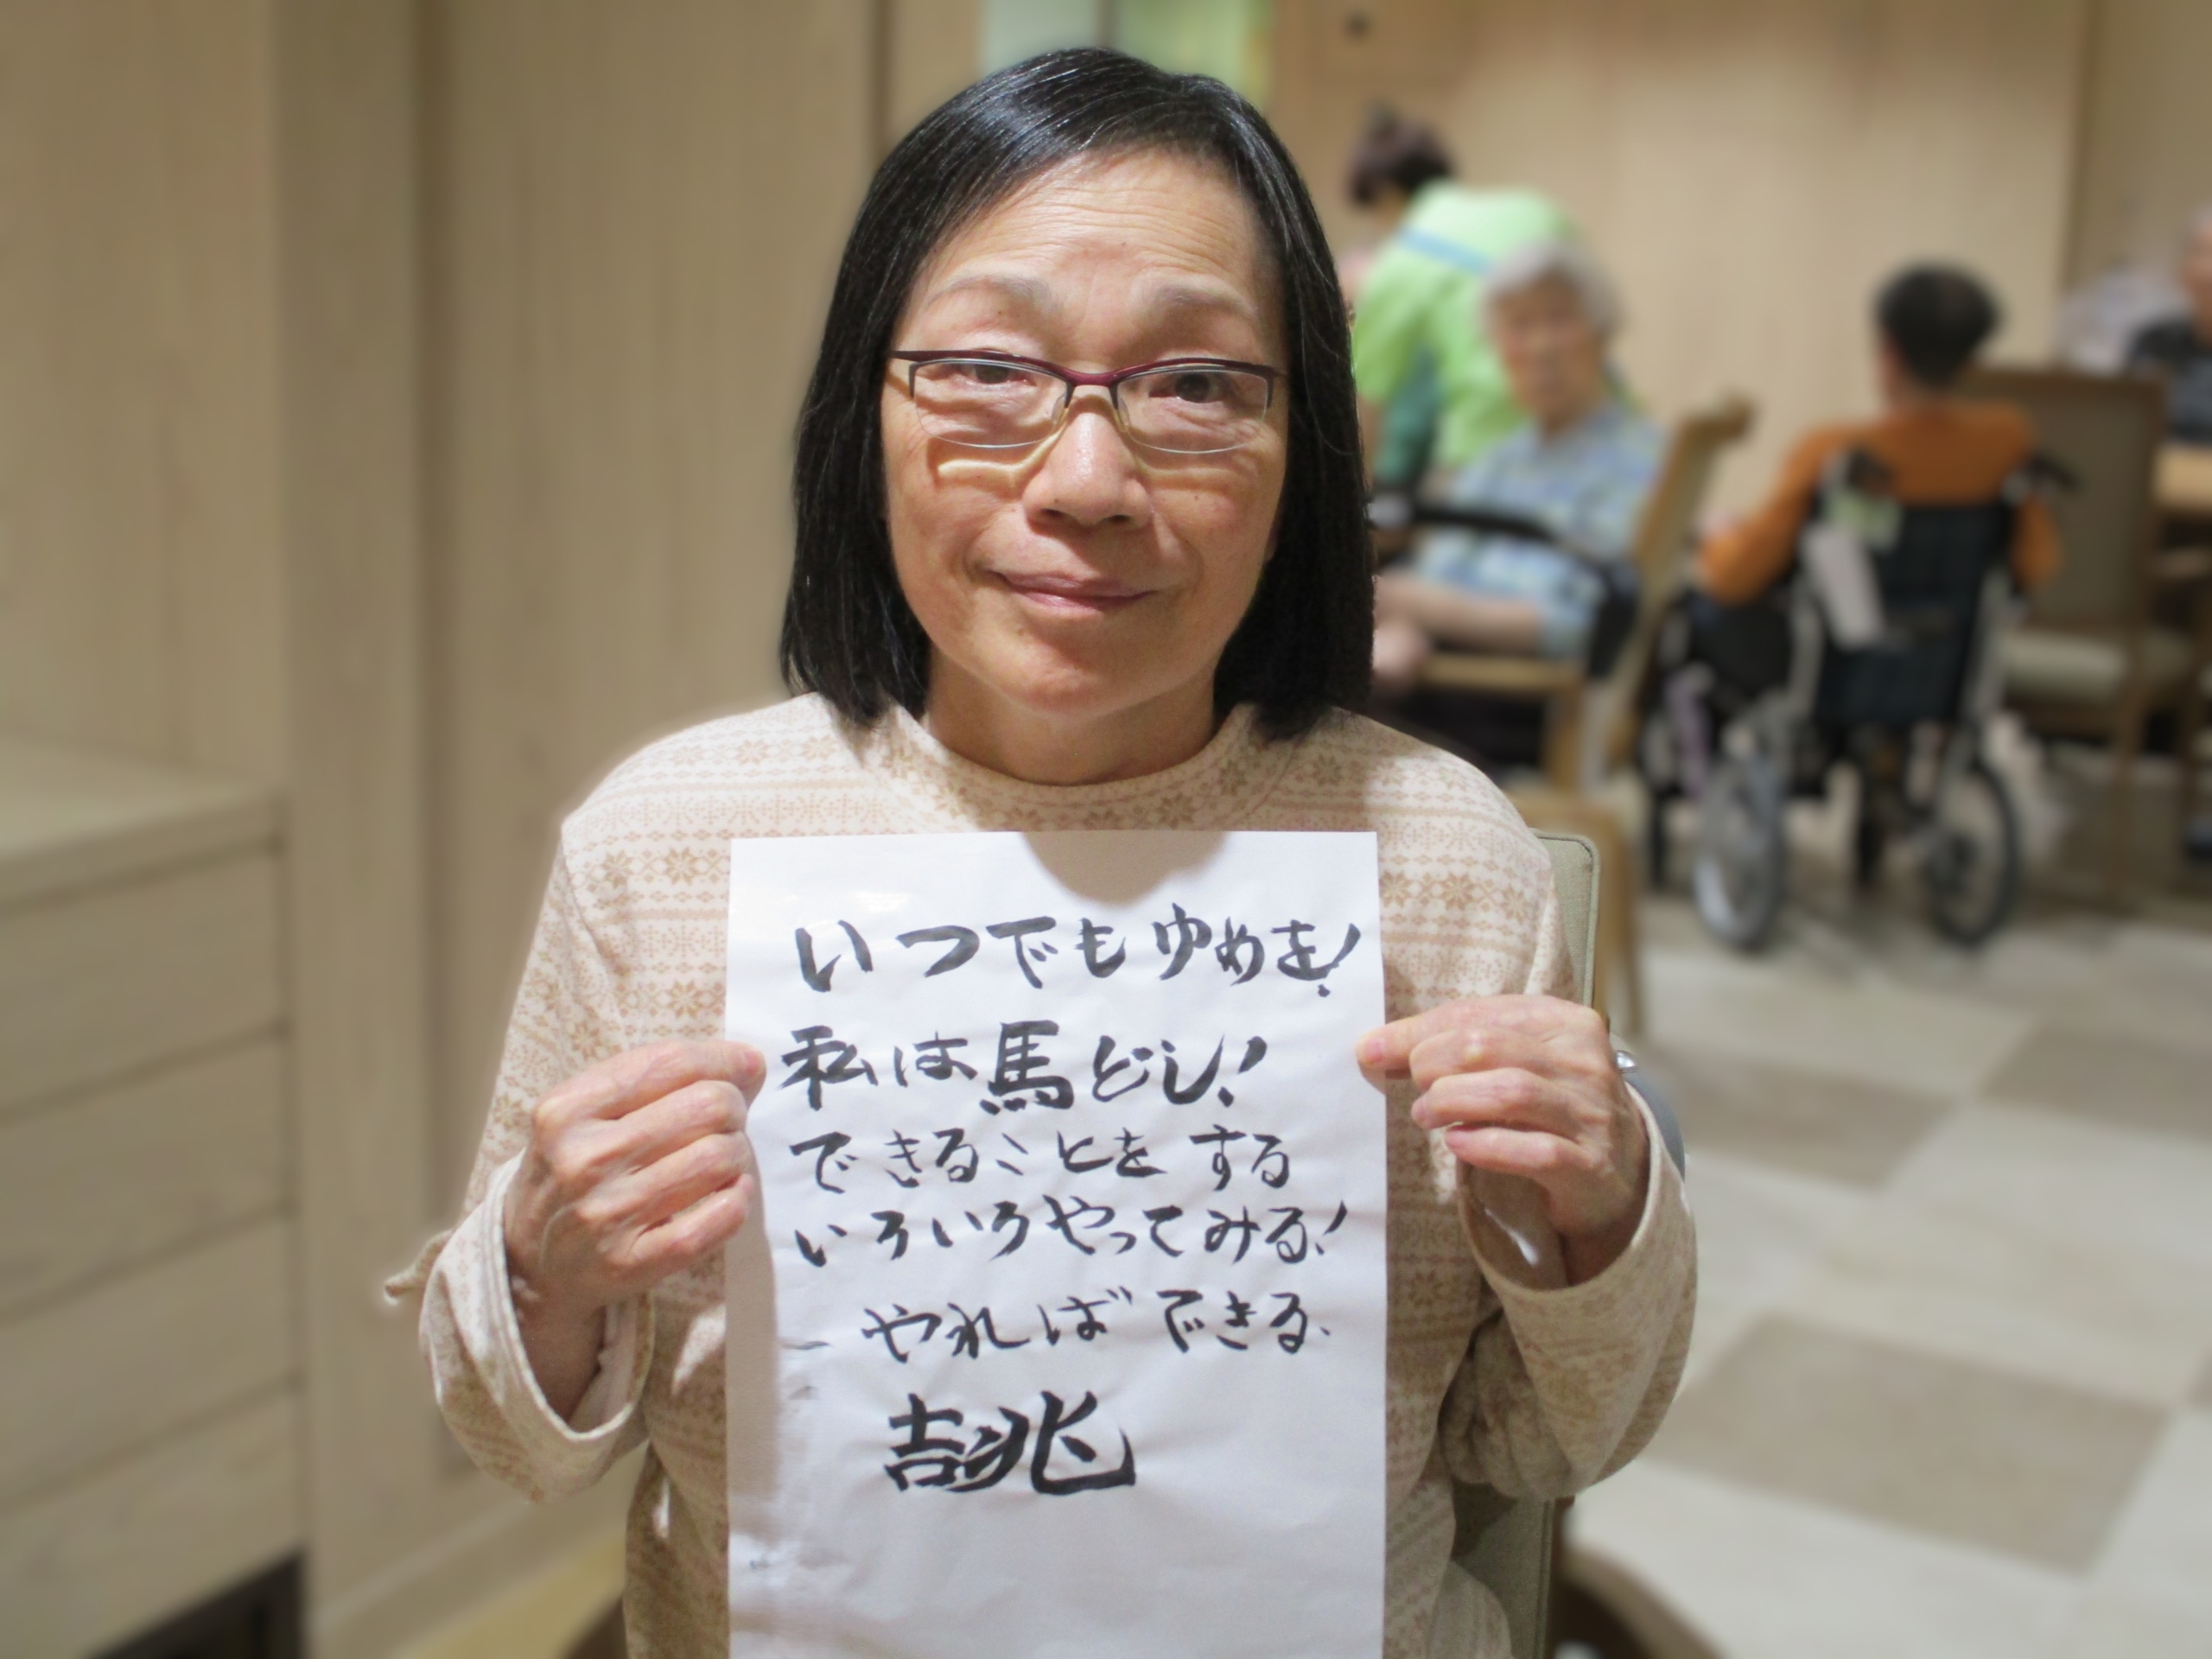 いつでもゆめを!
私は馬どし!
できることをする
いろいろやってみる!
やればできる.
吉兆